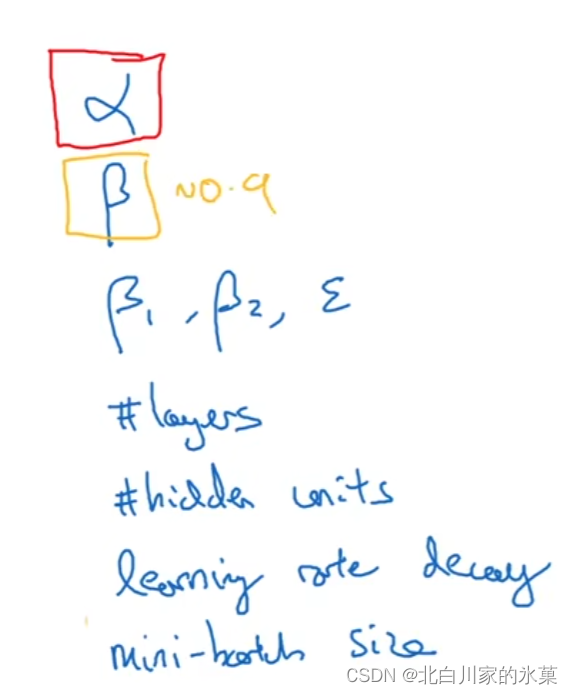 α
β ~0.9
β₁, β₂, ε
#layers
#hidden units
learning rate decay
mini-batch size
CSDN @北白川家的氷菓